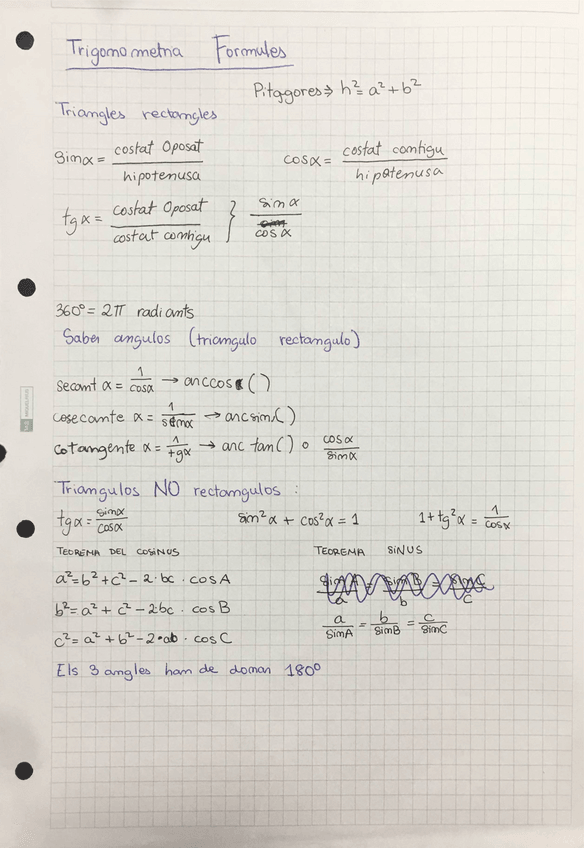 Trigonometria Formules
Pitagores ⇒ h² = a² + b²
Triangles rectangles
sin α = costat Oposat / hipotenusa
cos α = costat contigu / hipotenusa
tg α = costat Oposat / costat contigu } sin α / cos α
360º = 2π radiants
Saber angulos (triangulo rectangulo)
secant α = 1 / cos α → arccos ( )
cosecante α = 1 / sin α → arcsin ( )
cotangente α = 1 / tg α → arc tan ( ) o cos α / sin α
Triangulos NO rectangulos :
tg α = sin α / cos α
sin² α + cos² α = 1
1 + tg² α = 1 / cos x
TEOREMA DEL COSINUS
TEOREMA SINUS
a² = b² + c² - 2 · bc · cos A
b² = a² + c² - 2bc · cos B
c² = a² + b² - 2 · ab · cos C
a / sin A = b / sin B = c / sin C
Els 3 angles han de donar 180º